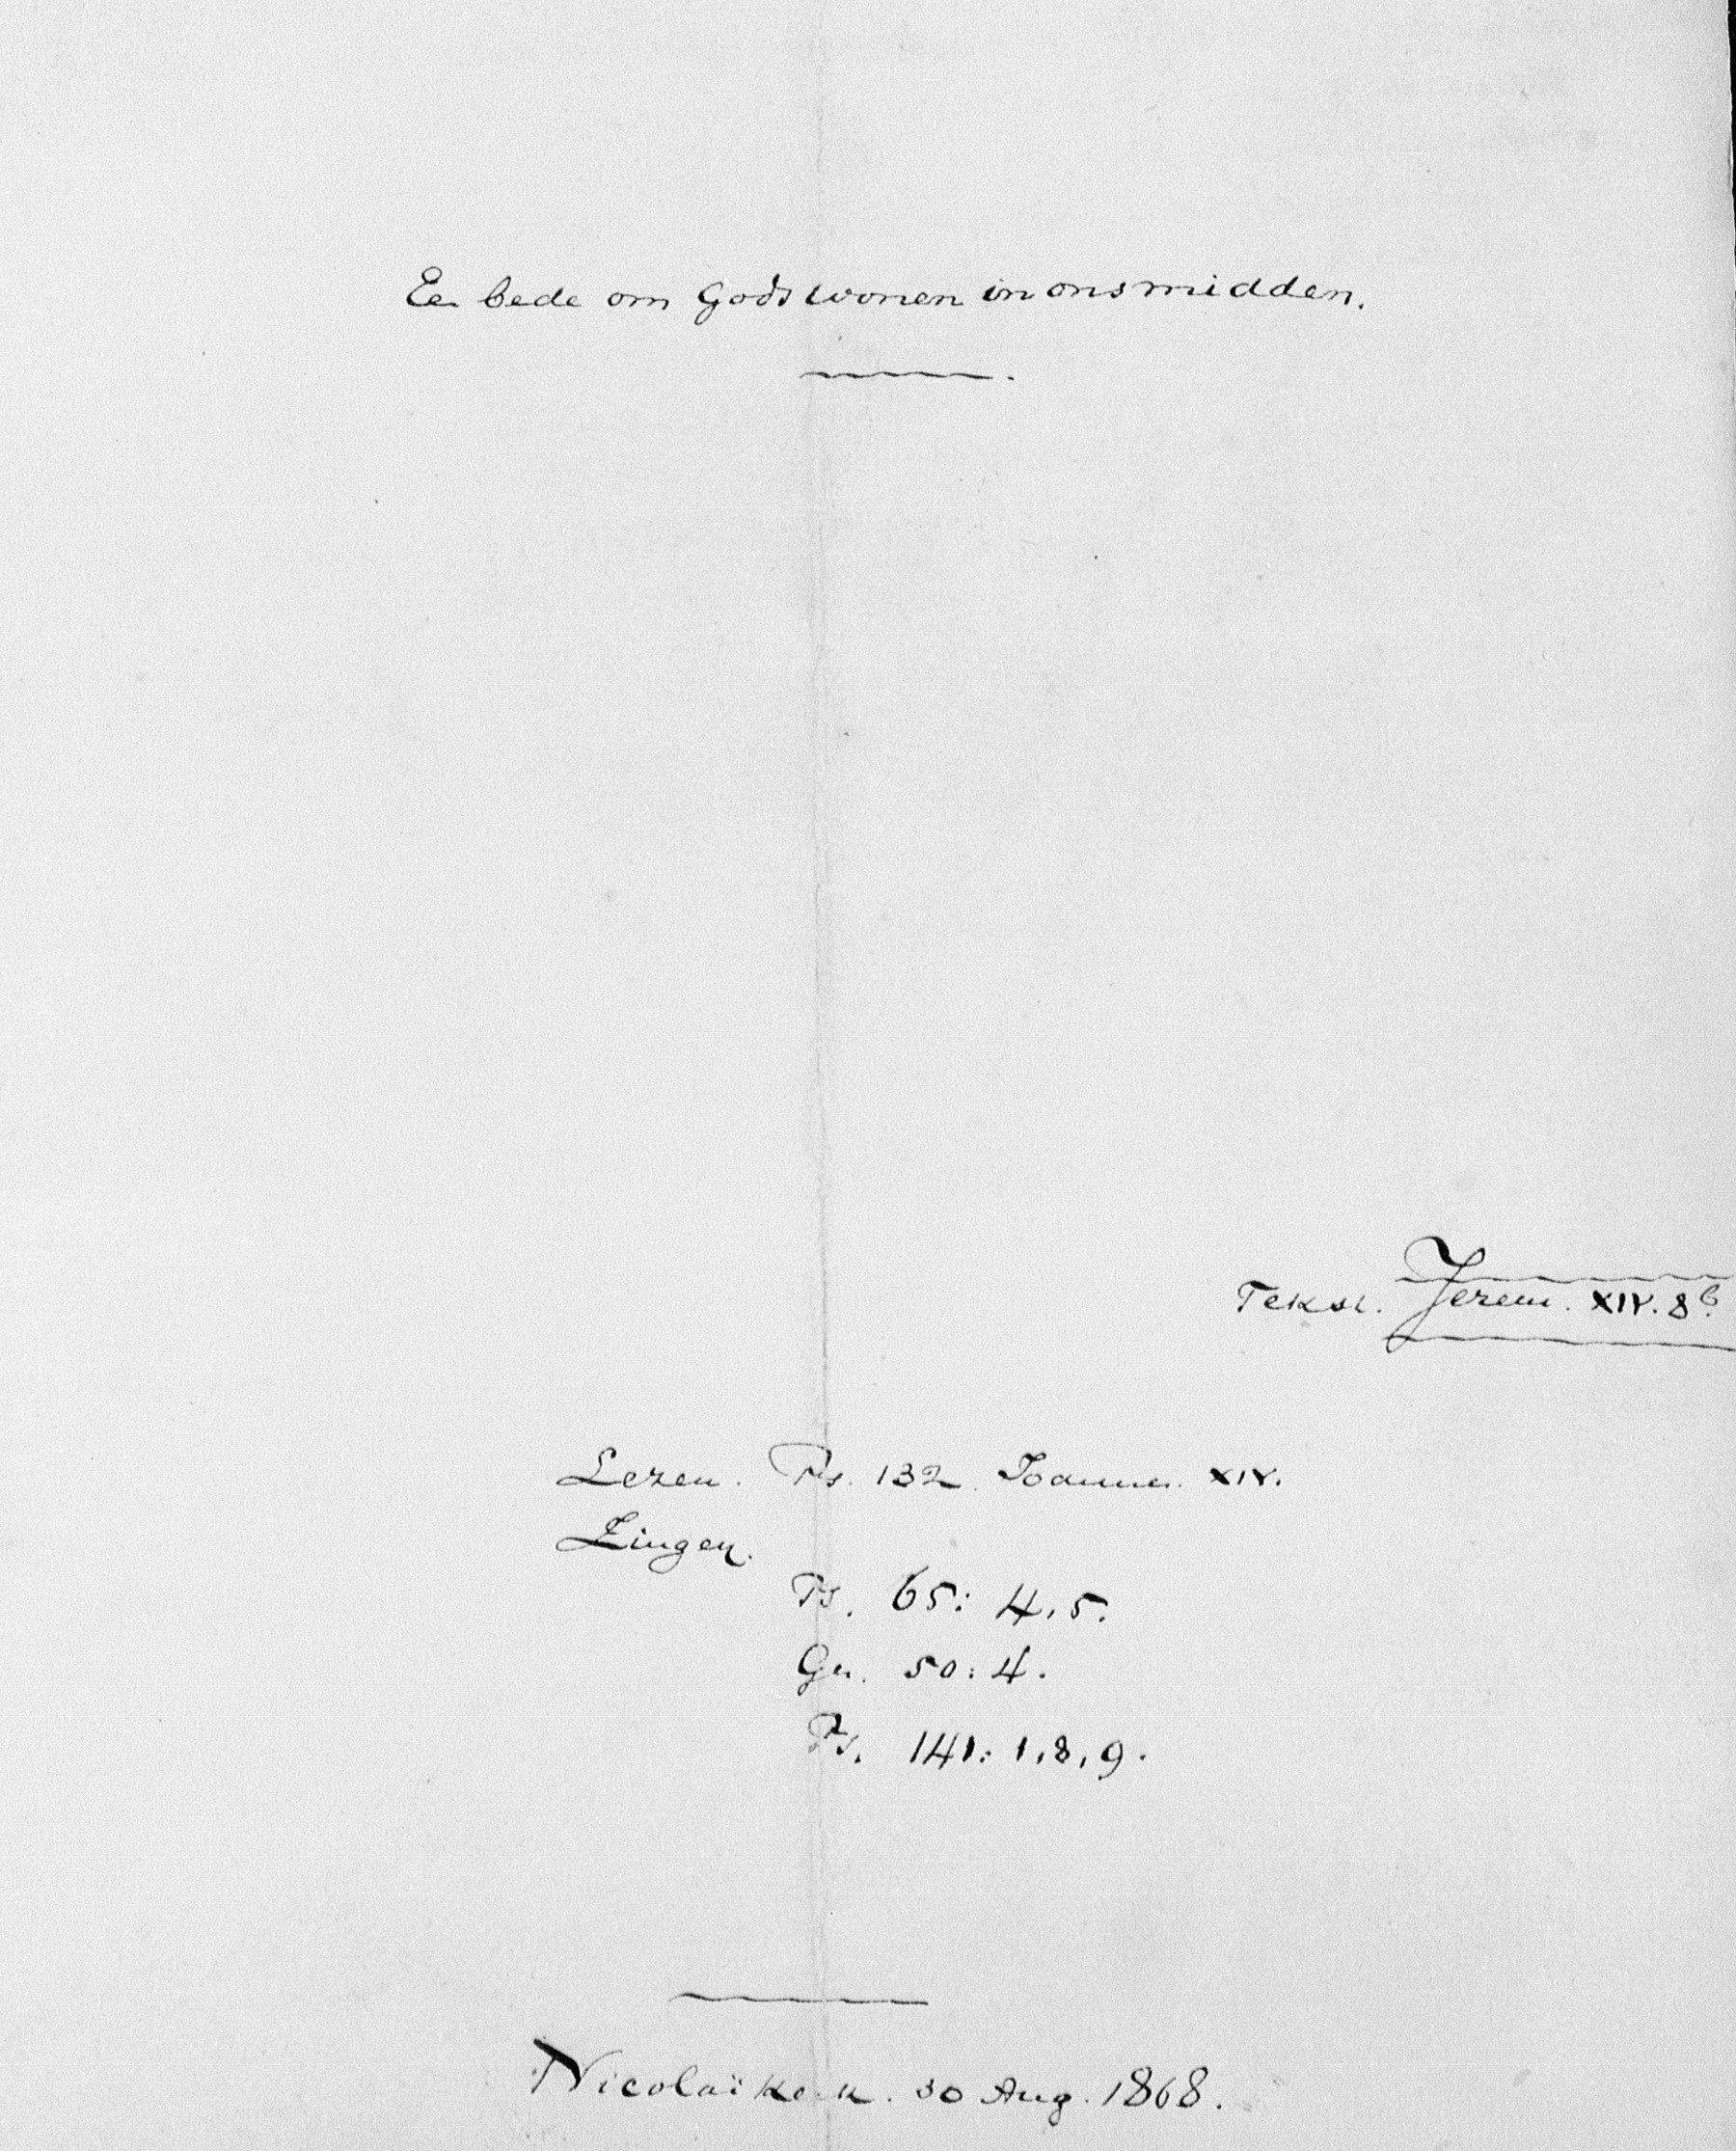 Een bede om Gods wonen in ons midden.
Tekst. Jerem. XIV. 8b.
Lezen. Ps. 132. Joannes. XIV.
Zingen.
Ps. 65: 4, 5.
Gez. 50: 4.
Ps. 141: 1, 8, 9.
Nicolaïkerk. 30 Aug. 1868.